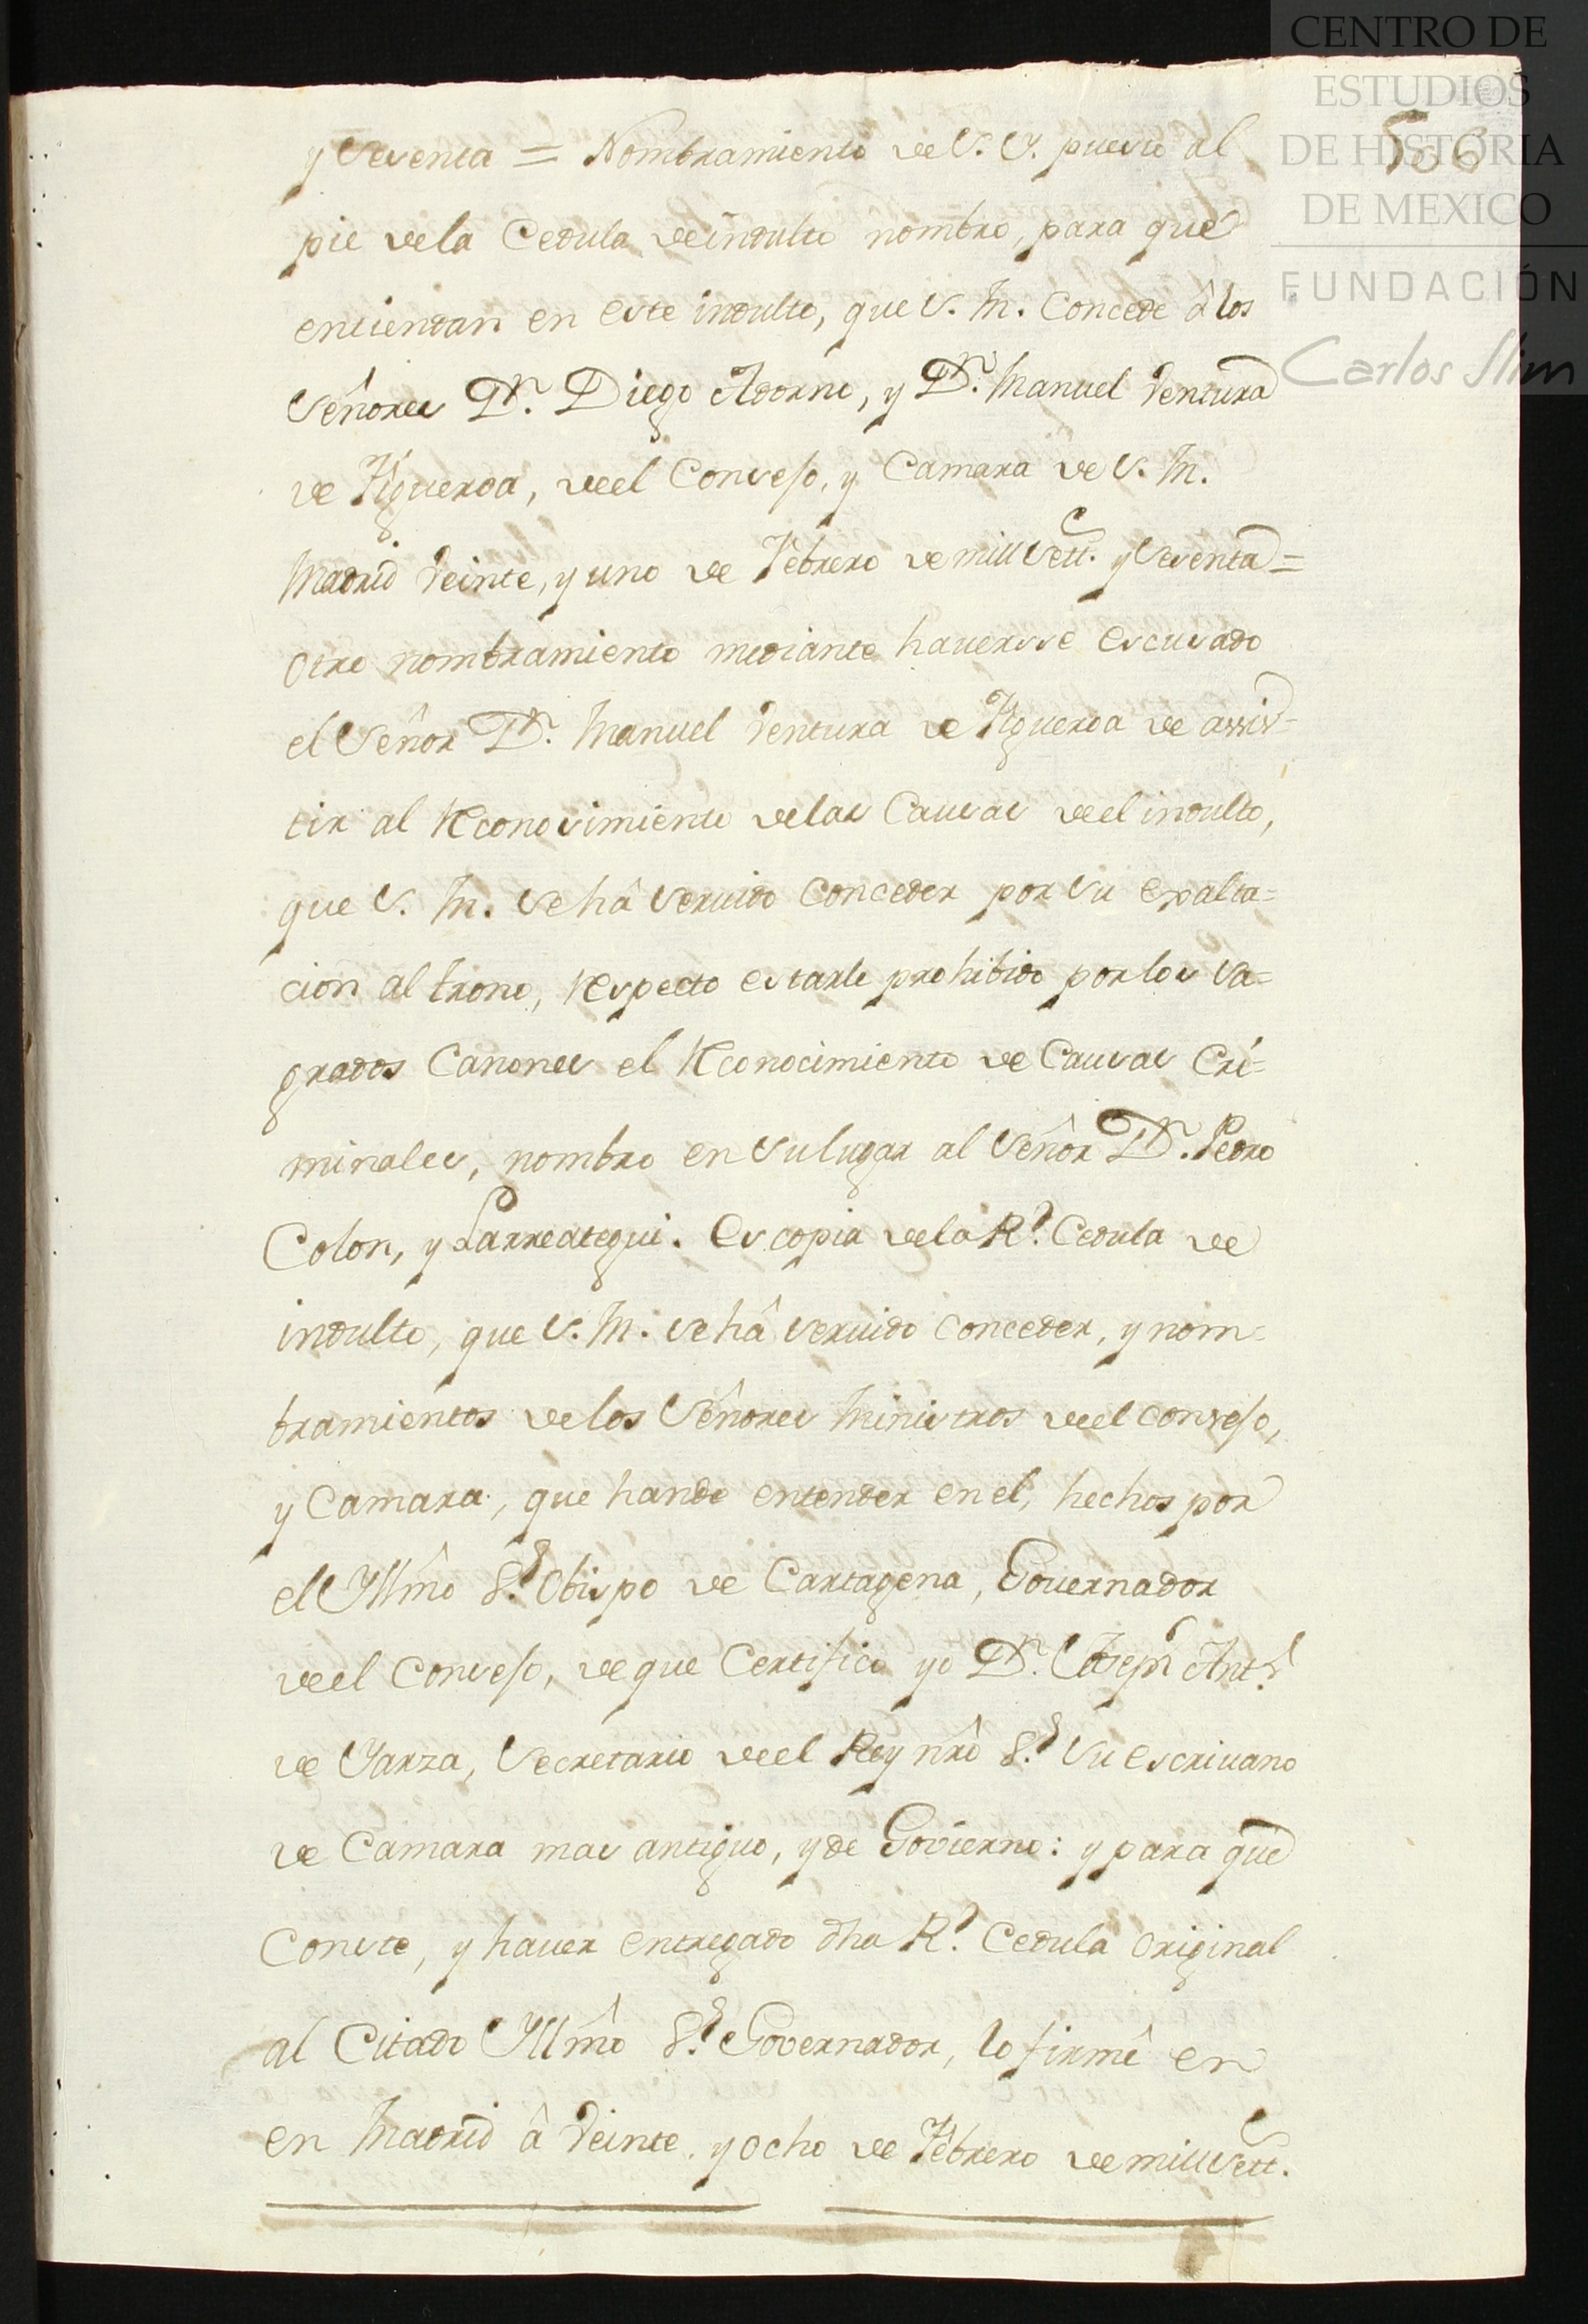 CENTRO DE
ESTUDIOS
DE HISTORIA
DE MEXICO
FUNDACIÓN
Carlos Slim
y Sesenta = Nombramiento de S. Y. puesto al
pie dela Cedula, de indulto nombro, para que
entiendan en este indulto, que S. M. Concede â los
Señores Dn. Diego Adorno, y Dn. Manuel Ventura
de Figueroa, deel Consejo, y Camara de S. M.
Madrid Veinte, y uno de Febrero de mill Sett.s y Sesenta =
Otro nombramiento mediante haversse escusado
el Señor Dn. Manuel Ventura de Figueroa de assis=
tir al Reconosimiento delas Causas deel indulto,
que S. M. se hâ servido Conceder por su exalta=
cion al trono, Respecto estarle prohibido por los Sa=
grados Canones el Reconocimiento de Causas Cri=
minales, nombro en su lugar al Señor Dn. Pedro
Colon, y Larreategui. Es copia dela Rl. Cedula de
indulto, que S. M. se hâ servido Conceder, y nom=
bramientos delos Señores Ministros deel Consejo,
y Camara, que hande entender en el, hechos por
el Yllmo Sr. Obispo de Cartagena, Governador
deel Consejo, de que Certifico yo Dn. Joseph Antt.o
de Yarza, Secretario deel Rey nrô Sr. Su escrivano
de Camara mas antiguo, y de Govierno: y para que
Conste, y haver entregado dha Rl. Cedula Original
al Citado Yllmô Sr. Governador, lo firmê en
en Madrid â Veinte, y ocho de Febrero de mill Sett.s